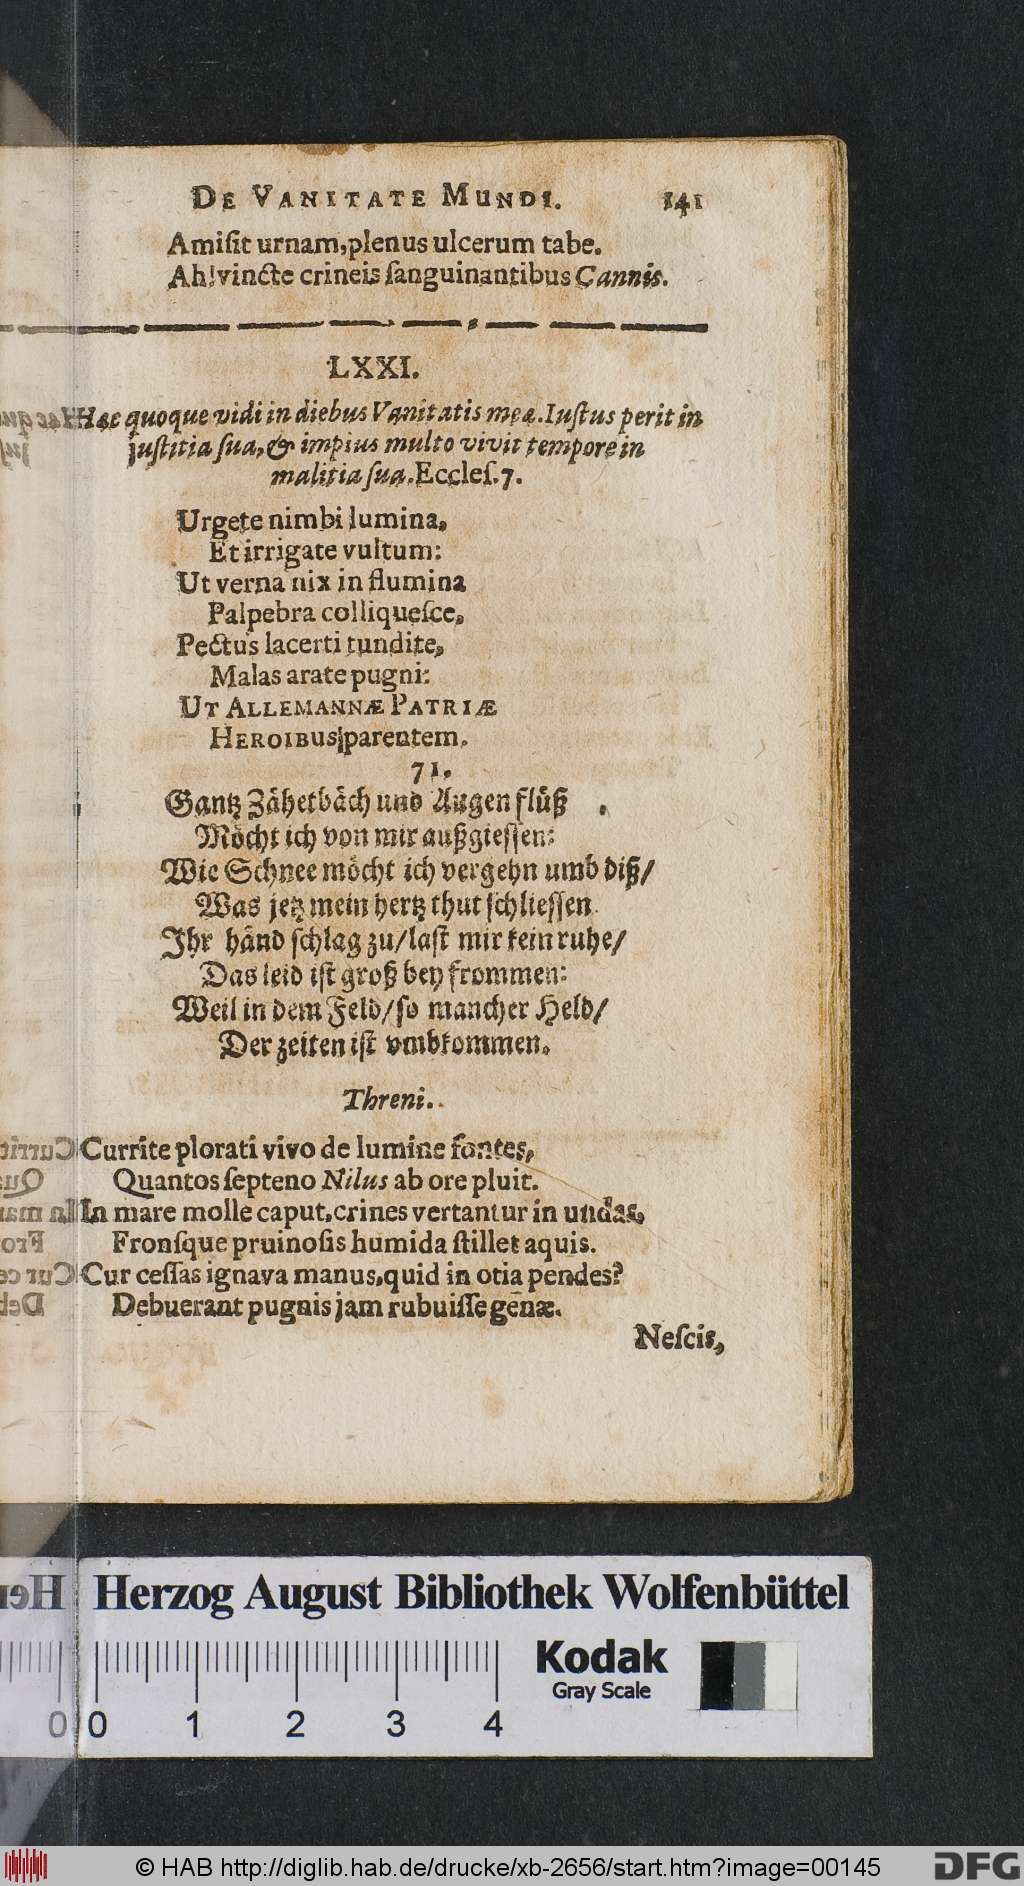 DE VANITATE MUNDI. 141
Amiſit urnam, plenus ulcerum tabe.
Ah! vincte crineis ſanguinantibus Cannis.
LXXI.
Hæc quoque vidi in diebus Vanitatis meæ. Iuſtus perit in
juſtitia ſua, & impius multo vivit tempore in
malitia ſua. Eccleſ. 7.
Urgete nimbi lumina,
Et irrigate vultum:
Ut verna nix in flumina
Palpebra colliqueſce,
Pectus lacerti tundite,
Malas arate pugni:
UT ALLEMANNÆ PATRIÆ
HEROIBus parentem.
71.
Gantz Zähetbäch und Augen flüß
Möcht ich von mir außgieſſen:
Wie Schnee möcht ich vergehn umb diß/
Was jetz mein hertz thut ſchlieſſen
Ihr händ ſchlag zu/ laſt mir kein ruhe/
Das leid iſt groß bey frommen:
Weil in dem Feld/ ſo mancher Held/
Der zeiten iſt vmbkommen.
Threni.
Currite plorati vivo de lumine fontes,
Quantos ſepteno Nilus ab ore pluit.
In mare molle caput, crines vertantur in undas,
Fronſque pruinoſis humida ſtillet aquis.
Cur ceſſas ignava manus, quid in otia pendes?
Debuerant pugnis jam rubuiſſe genæ.
Neſcis,
Herzog August Bibliothek Wolfenbüttel
Kodak
Gray Scale
0 1 2 3 4
© HAB http://diglib.hab.de/drucke/xb-2656/start.htm?image=00145
DFG